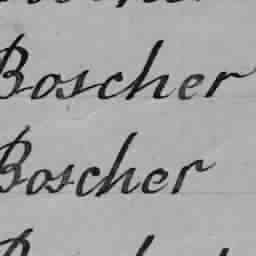 Boscher
Boscher